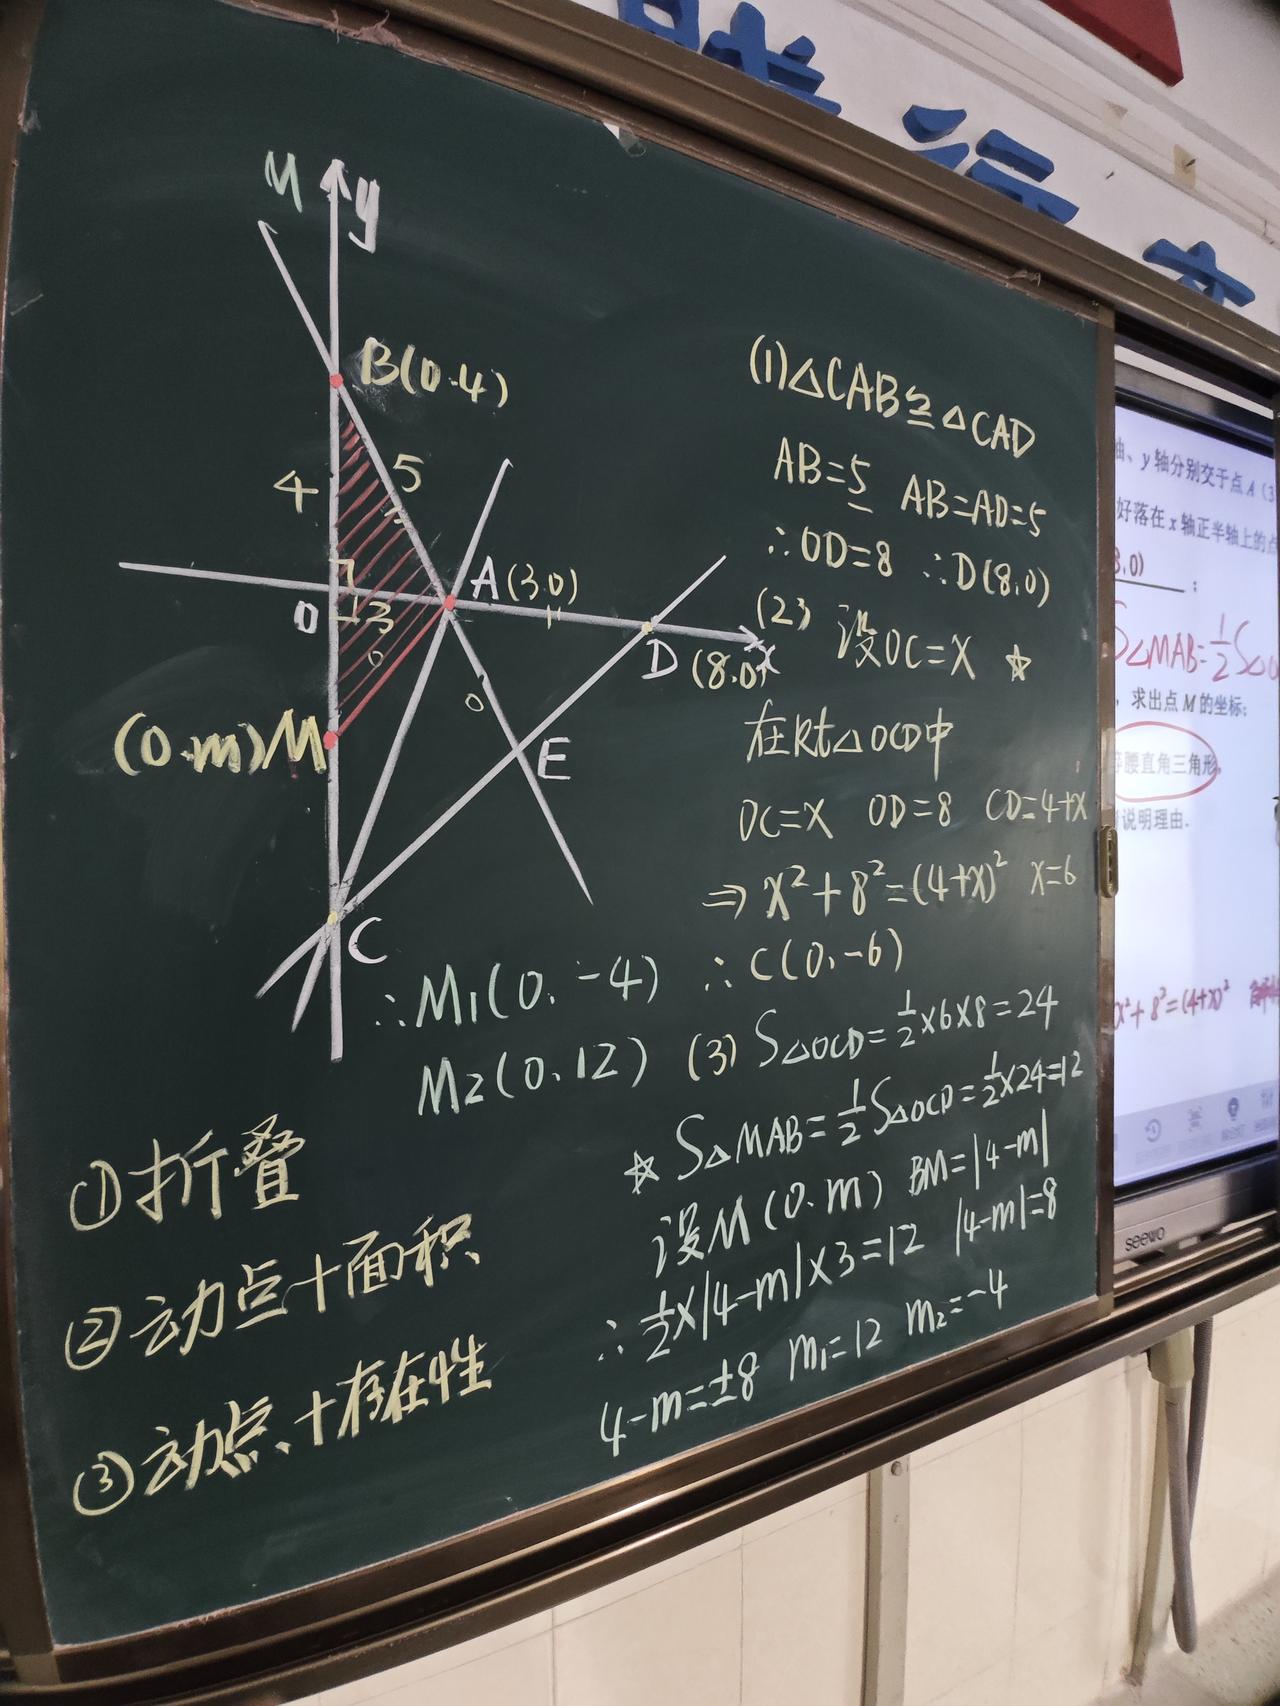 M
y
B(0.4)
4
5
A(3.0)
O
3
D
(8.0)
x
(0.m)M
E
C
(1)△CAB≌△CAD
AB=5 AB=AD=5
∴OD=8 ∴D(8,0)
(2) 设OC=X ☆
在Rt△OCD中
OC=X OD=8 CD=4+x
⇒ X²+8²=(4+X)² X=6
∴C(0,-6)
∴M1(0,-4)
M2(0,12)
(3) S△OCD=1/2×6×8=24
☆ S△MAB=1/2S△OCD=1/2×24=12
设M(0.m) BM=|4-m|
∴1/2×|4-m|×3=12 |4-m|=8
4-m=±8 m1=12 m2=-4
①折叠
②动点+面积
③动点、+存在性
轴、y轴分别交于点A(3
好落在x轴正半轴上的点
3,0)
;
S△MAB=1/2S△
,求出点M的坐标;
等腰直角三角形,
说明理由.
x²+8²=(4+x)²
seewo
行